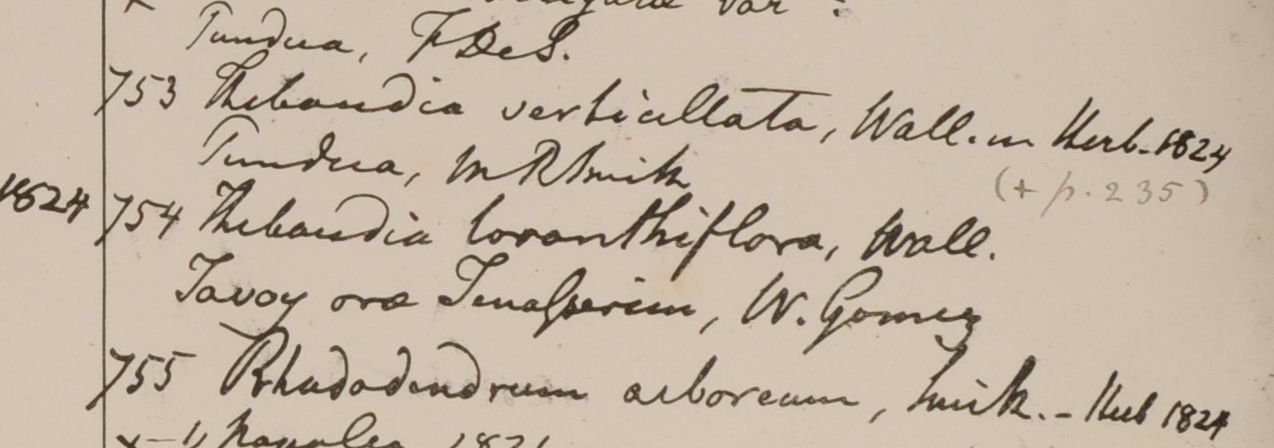 var?
Pundua, F De S.
753 Thibaudia verticillata, Wall. in Herb. 1824
Pundua, M R Smith
(+ p. 235)
1824 754 Thibaudia loranthiflora, Wall.
Tavoy oræ Tenasserim, W. Gomez
755 Rhododendrum arboreum, Smith. - Herb 1824
1821